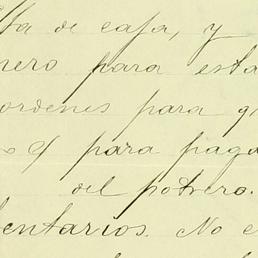 lta de caja, y
nero para esta
ordenes para q
para paga
del potrero.
entarios. No e